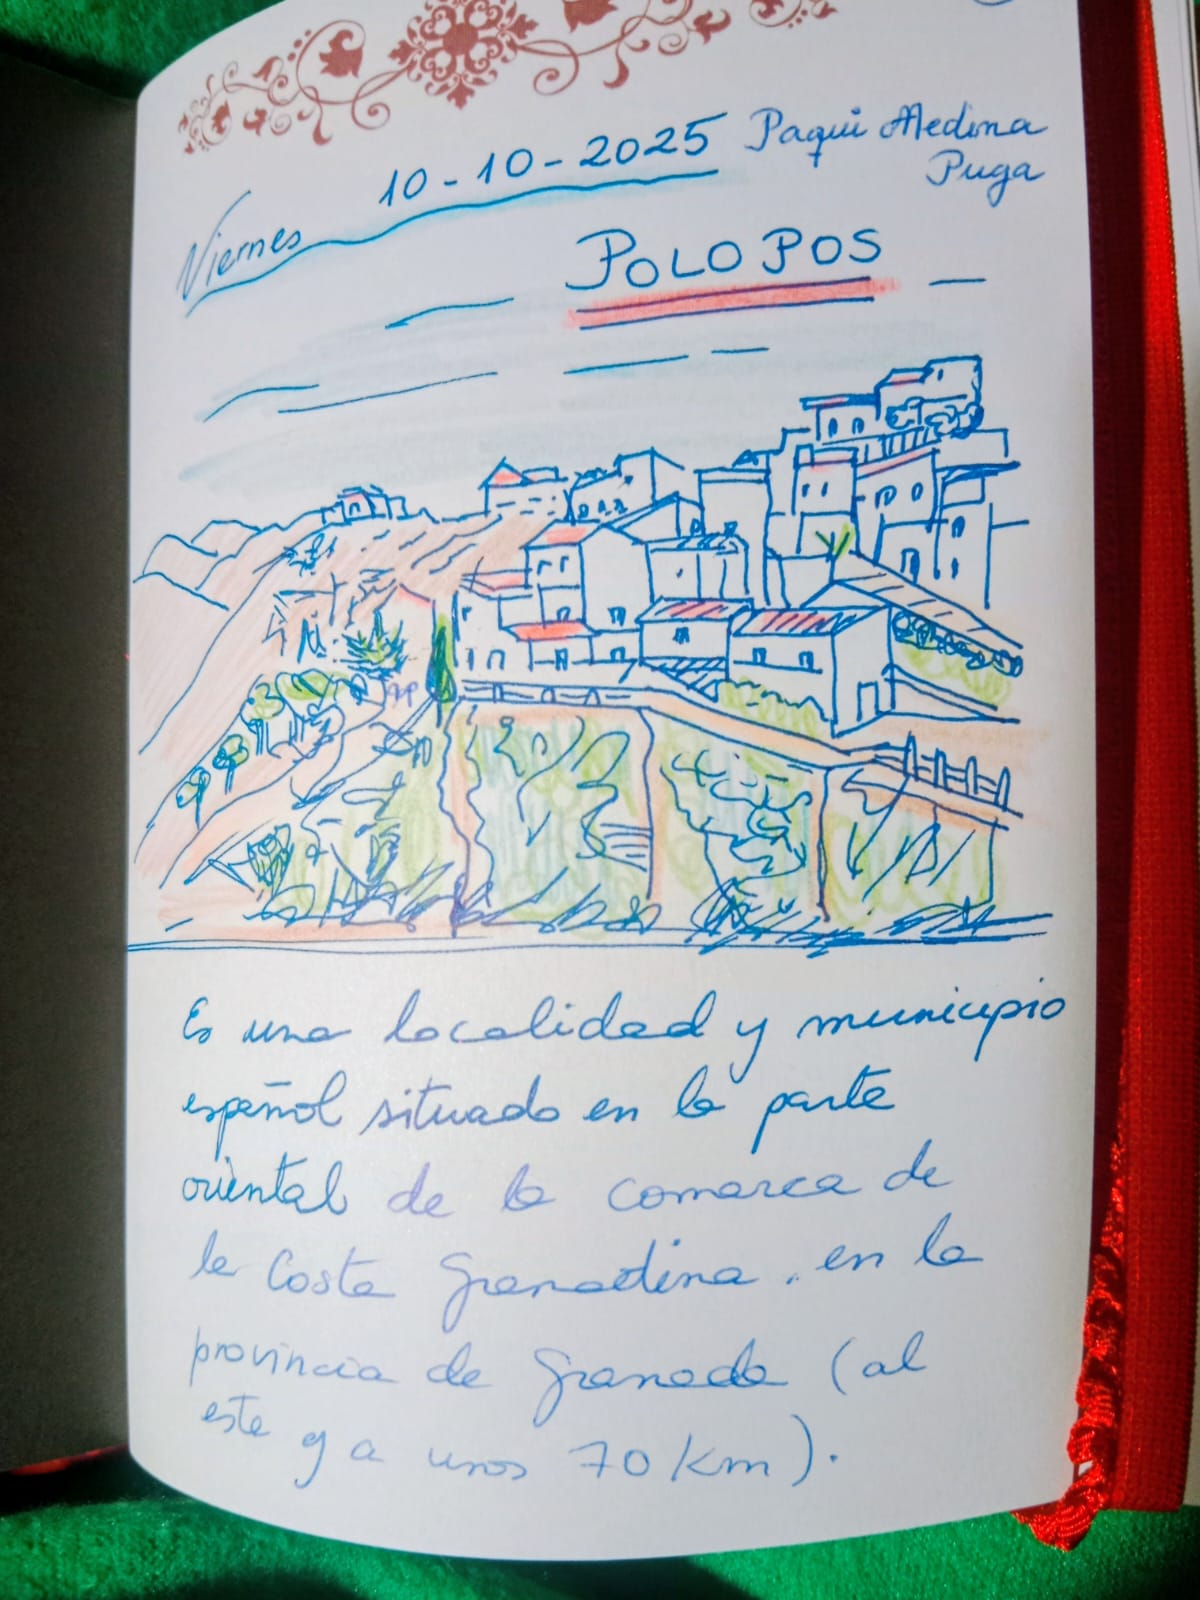 Viernes 10-10-2025 Paqui Medina
Puga
POLOPOS
Es una localidad y municipio
español situado en la parte
oriental de la comarca de
la Costa Granadina, en la
provincia de Granada (al
este y a unos 70 Km).